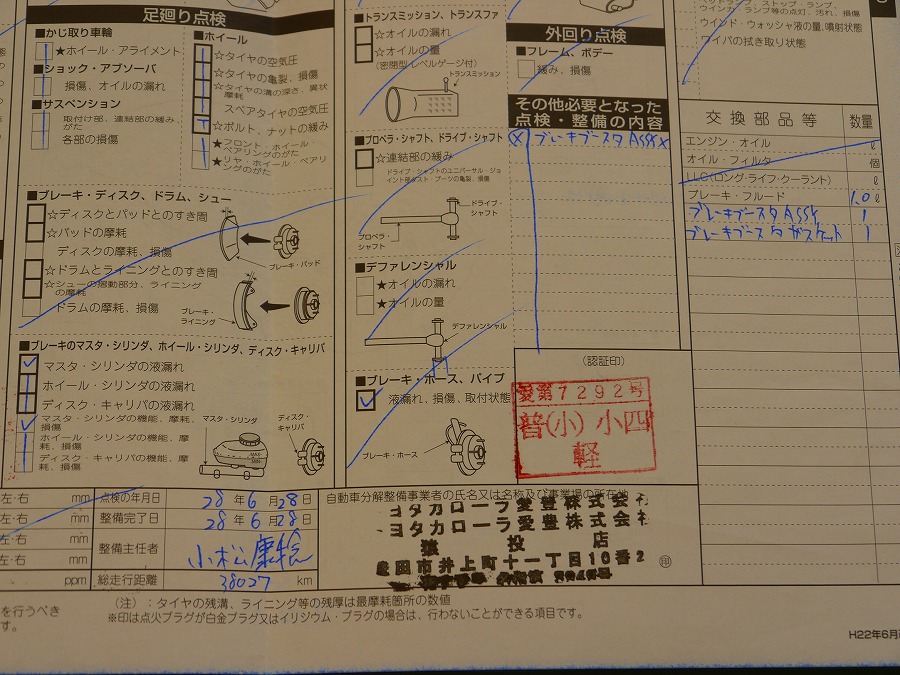 足廻り点検
■かじ取り車輪
★ホイール・アライメント
■ショック・アブソーバ
損傷、オイルの漏れ
■サスペンション
取付け部、連結部の緩み、
がた
各部の損傷
■ホイール
☆タイヤの空気圧
☆タイヤの亀裂、損傷
☆タイヤの溝の深さ、異状
摩耗
スペアタイヤの空気圧
☆ボルト、ナットの緩み
★フロント・ホイール・
ベアリングのがた
★リヤ・ホイール・ベアリ
ングのがた
■ブレーキ・ディスク、ドラム、シュー
☆ディスクとパッドとのすき間
☆パッドの摩耗
ディスクの摩耗、損傷
☆ドラムとライニングとのすき間
☆シューの摺動部分、ライニング
の摩耗
ドラムの摩耗、損傷
ブレーキ・パッド
ブレーキ・
ライニング
■ブレーキのマスタ・シリンダ、ホイール・シリンダ、ディスク・キャリパ
マスタ・シリンダの液漏れ
ホイール・シリンダの液漏れ
ディスク・キャリパの液漏れ
マスタ・シリンダの機能、摩耗、
損傷
ホイール・シリンダの機能、摩
耗、損傷
ディスク・キャリパの機能、摩
耗、損傷
マスタ・シリンダ
ディスク・
キャリパ
■トランスミッション、トランスファ
☆オイルの漏れ
☆オイルの量
(密閉型:レベルゲージ付)
トランスミッション
■プロペラ・シャフト、ドライブ・シャフト
☆連結部の緩み
ドライブ・シャフトのユニバーサル・ジョ
イント部ダスト・ブーツの亀裂、損傷
ドライブ・
シャフト
プロペラ・
シャフト
■デファレンシャル
★オイルの漏れ
★オイルの量
デファレンシャル
■ブレーキ・ホース、パイプ
液漏れ、損傷、取付状態
ブレーキ・ホース
外回り点検
■フレーム、ボデー
緩み、損傷
その他必要となった
点検・整備の内容
ブレーキブースタ ASSY
(認証印)
愛第7292号
普(小)小四
軽
ウインカ、ランプ等の点灯、汚れ、損傷
ウインド・ウォッシャ液の量、噴射状態
ワイパの拭き取り状態
交換部品等 数量
エンジン・オイル ℓ
オイル・フィルタ 個
LLC(ロング・ライフ・クーラント) ℓ
ブレーキ・フルード 1.0 ℓ
ブレーキブースタ ASSY 1
ブレーキブースタ ガスケット 1
左・右 mm
左・右 mm
左・右 mm
左・右 mm
ppm
点検の年月日 28年6月28日
整備完了日 28年6月28日
整備主任者
総走行距離 38027 km
自動車分解整備事業者の氏名又は名称及び事業場の所在地
ヨタカローラ愛豊株式会社
ヨタカローラ愛豊株式会社
猿投店
田市井上町十一丁目10番2
印
(注):タイヤの残溝、ライニング等の残厚は最摩耗箇所の数値
※印は点火プラグが白金プラグ又はイリジウム・プラグの場合は、行わないことができる項目です。
を行うべき
す。
H22年6月